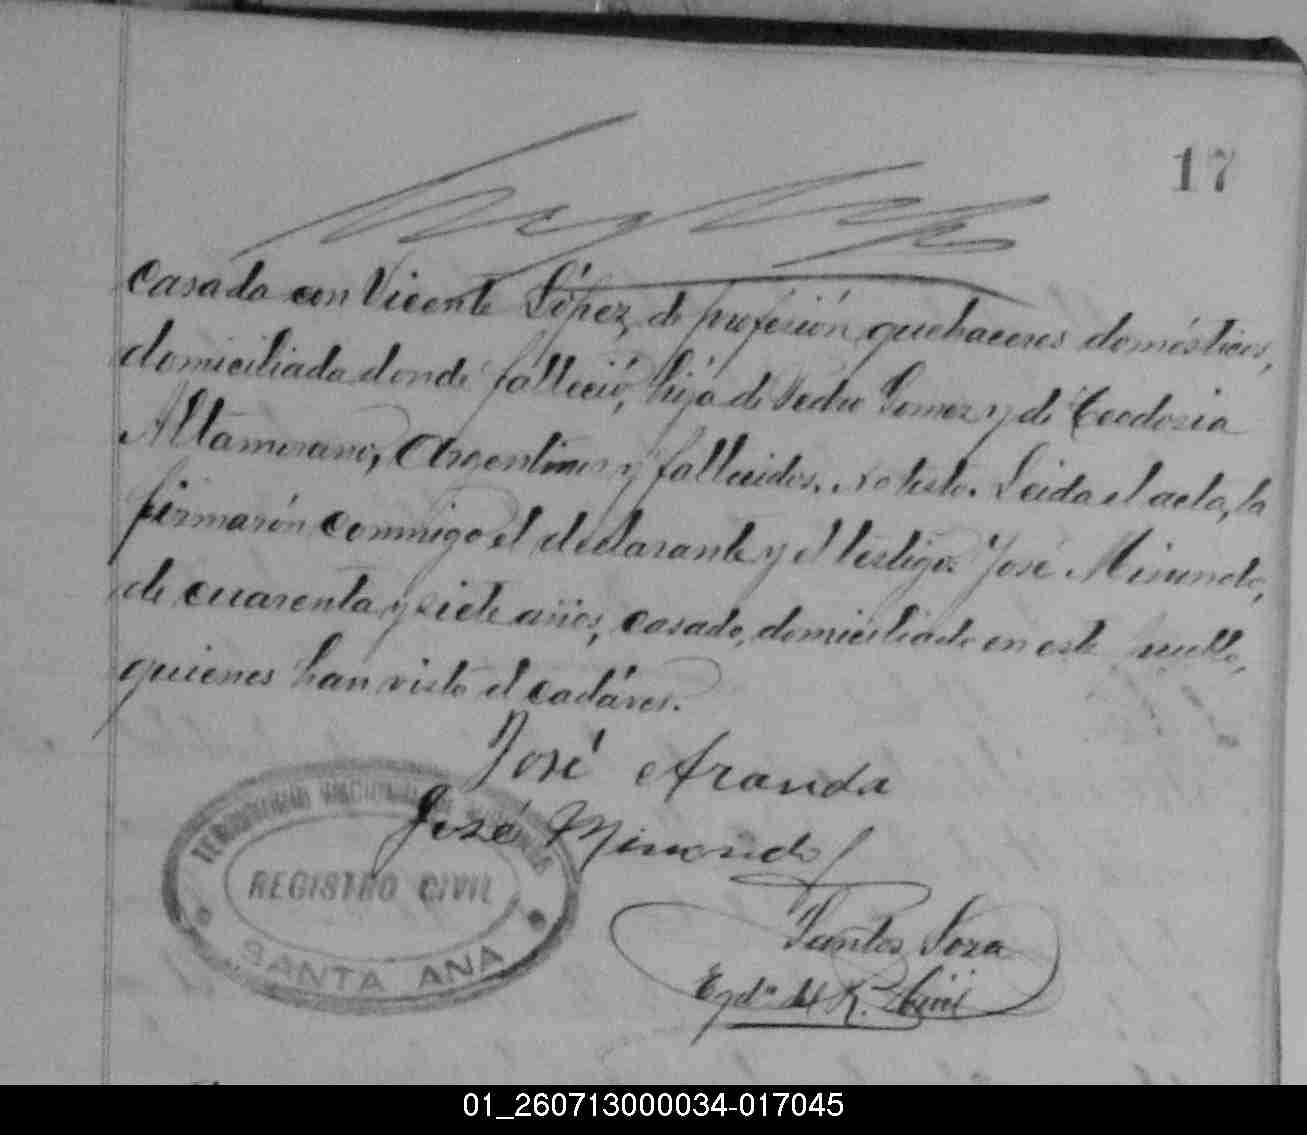 17
casada con Vicente López, de profesión quehaceres domésticos,
domiciliada donde falleció, hija de Pedro Gomez y de Teodoria
Altamirano, Argentinos y fallecidos. No testó. Leida el acta, la
firmarón conmigo el declarante y el testigo José Mirando,
de cuarenta y siete años, casado, domiciliado en este pueblo,
quienes han visto el cadáver.
José Aranda
José Mirando
TERRITORIO NACIONAL DE MISIONES
REGISTRO CIVIL
SANTA ANA
Santos Soza
del R. Civil
01_260713000034-017045